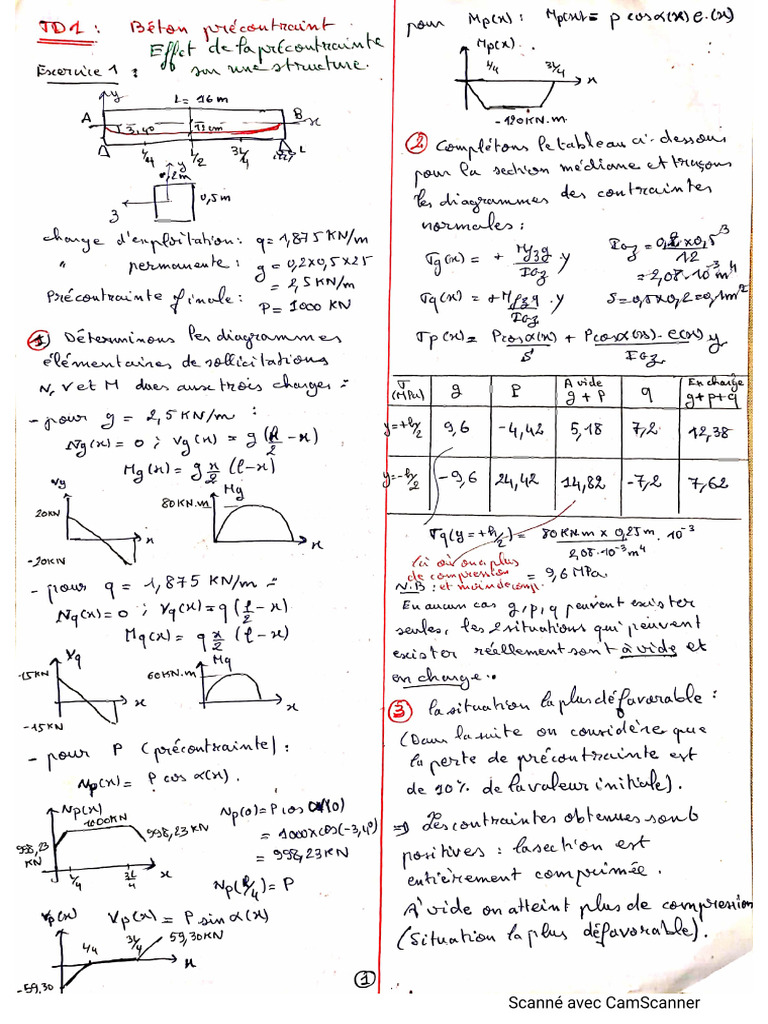 TD1 : Béton précontraint.
Effet de la précontrainte
sur une structure.
Exercice 1 :
y
L = 16 m
A
B
x
3,40
12cm
L/4
L/2
3L/4
L
y
0,2m
0,5m
z
charge d'exploitation: q = 1,875 KN/m
" permanente : g = 0,2x0,5x25
= 2,5 KN/m
Précontrainte finale : P = 1000 KN
① Déterminons les diagrammes
élémentaires de sollicitations
N, V et M dues aux trois charges :
- pour g = 2,5 KN/m :
Ng(x) = 0 ; Vg(x) = g(l/2 - x)
Mg(x) = g x/2 (l - x)
Vg
20KN
-20KN
x
Mg
80KN.m
x
- pour q = 1,875 KN/m :
Nq(x) = 0 ; Vq(x) = q(l/2 - x)
Mq(x) = q x/2 (l - x)
Vq
15KN
-15KN
x
Mq
60KN.m
x
- pour P (précontrainte) :
Np(x) = P cos α(x).
Np(x)
1000KN
998,23 KN
998,23 KN
L/4
3L/4
x
= 1000 x cos(-3,4°)
= 998,23 KN
Np(l/4) = P
Vp(x)
Vp(x) = P sin α(x)
59,30 KN
-59,30
L/4
3L/4
x
①
pour Mp(x) : Mp(x) = p cos α(x) e.(x)
Mp(x).
L/4
3L/4
x
-120 KN.m
② Complétons le tableau ci-dessous
pour la section médiane et traçons
les diagrammes des contraintes
normales :
σg(x) = + Mgzg/IGz . y
IGz = 0,2 x 0,5^3 / 12
= 2,08.10^-3 m^4
σq(x) = + Mfzq/IGz . y
S = 0,5 x 0,2 = 0,1m^2
σp(x) = Pcosα(x)/S + Pcosα(x).e(x)/IGz y
σ (MPa) | g | P | A vide g + P | q | En charge g+p+q
y=+h/2 | 9,6 | -4,42 | 5,18 | 7,2 | 12,38
y=-h/2 | -9,6 | 24,42 | 14,82 | -7,2 | 7,62
σg(y=+h/2) = 80KNm x 0,25m . 10^-3 / 2,08.10^-3 m^4
= 9,6 MPa
ici où on a plus
de compression
N.B : et moins de comp.
En aucun cas g, p, q peuvent exister
seules, les 2 situations qui peuvent
exister réellement sont à vide et
en charge.
③ la situation la plus défavorable :
(Dans la suite on considère que
la perte de précontrainte est
de 10% de la valeur initiale).
=> Les contraintes obtenues sont
positives : la section est
entièrement comprimée.
A vide on atteint plus de compression
(Situation la plus défavorable).
Scanné avec CamScanner